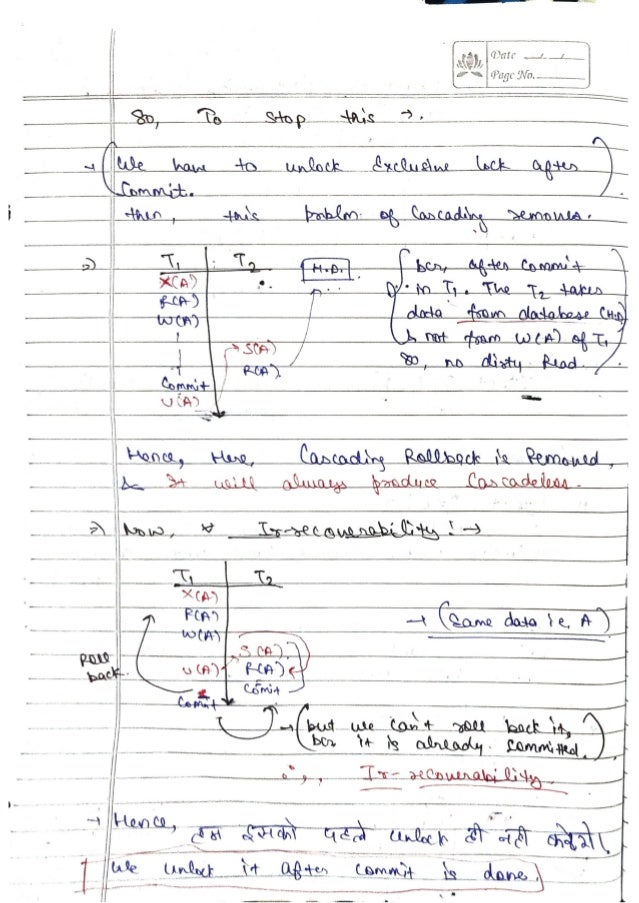 Date
Page No.
So, To stop this →.
→ (We have to unlock Exclusive lock after Commit.)
then, this problm of Cascading removes.
⇒ T1 T2 H.D.
X(A)
R(A)
W(A)
S(A)
R(A)
Commit
U(A)
(bcz, after commit
in T1. The T2 takes
data from database (H.D)
& not from W(A) of T1
So, no dirty Read.)
Hence, Here, Cascading Rollback is Removed,
& It will always produce Cascadeless.
⇒ Now, * Ir-recoverability! →
T1 T2
X(A)
R(A)
W(A)
→ (Same data i.e, A)
S(A)
U(A) R(A)
Comit
Roll
back.
Commit
→ (but we can't roll back it,
bcz it is already committed.)
∴, Ir-recoverability.
→ Hence, हम इसको पहले unlock ही नहीं करेंगे।
We unlock it after commit is done.